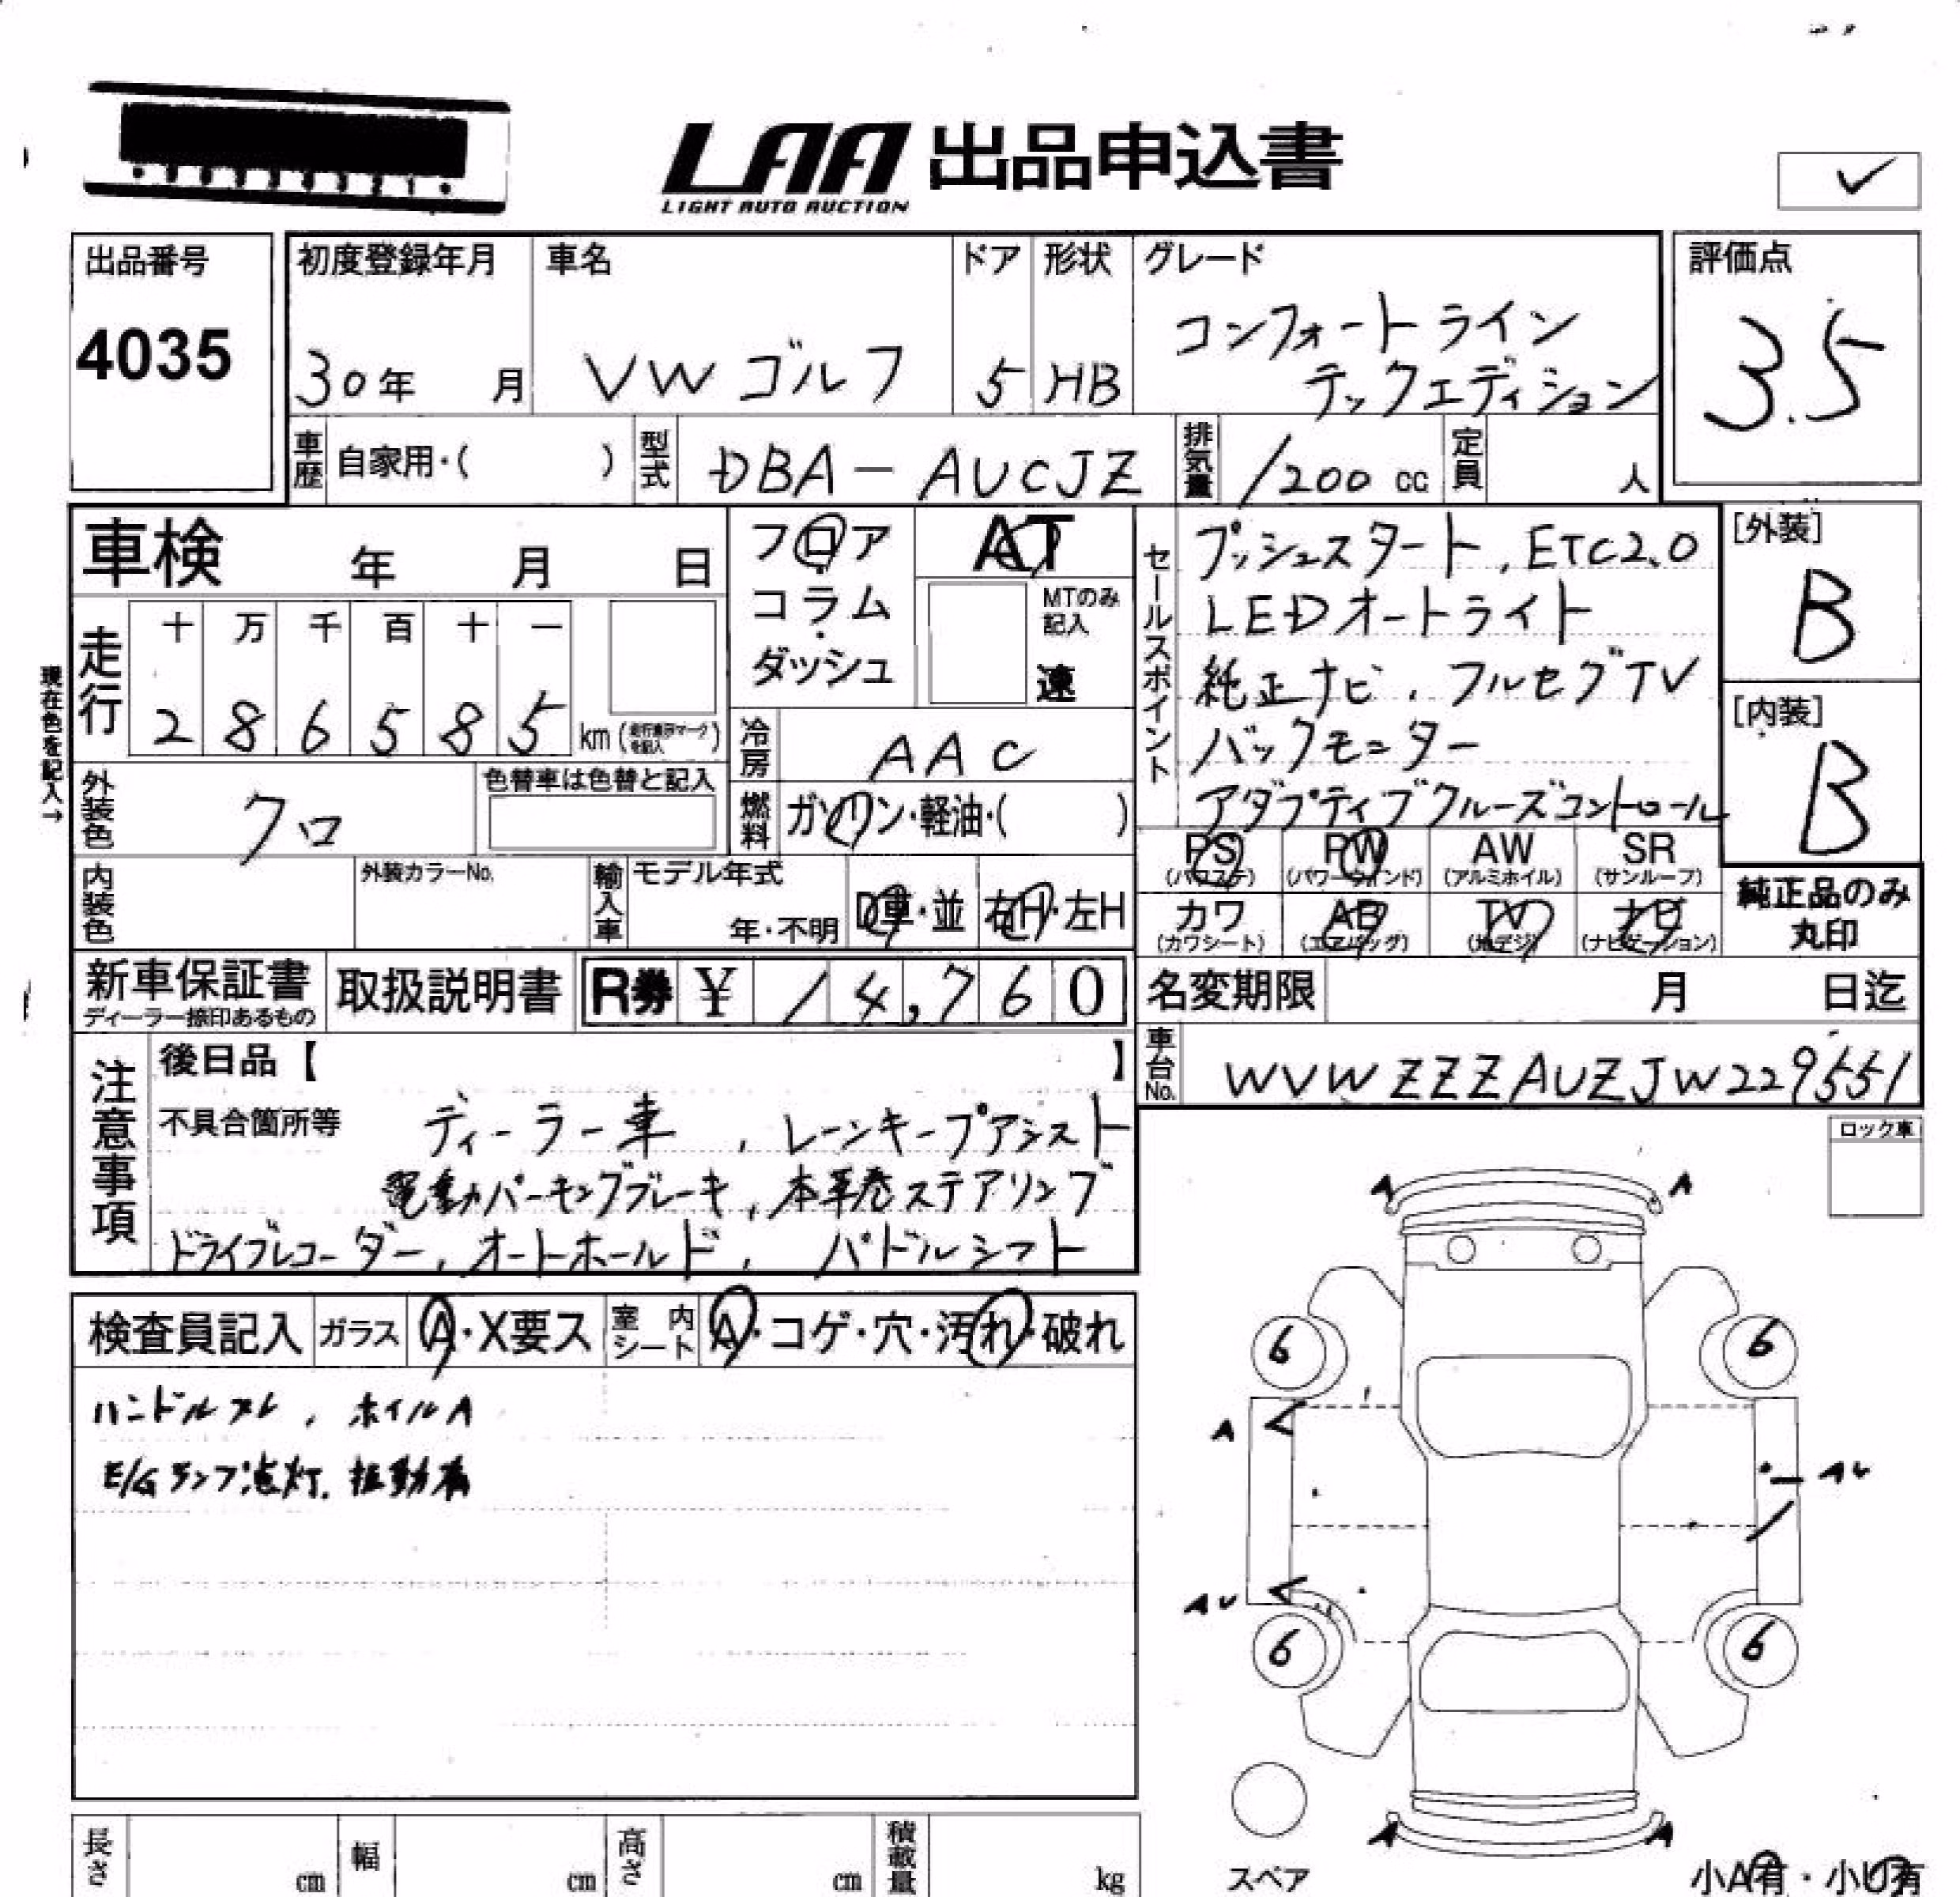 LAA 出品申込書
LIGHT AUTO AUCTION
出品番号
4035
初度登録年月
30年 月
車名
VW ゴルフ
ドア
5
形状
HB
グレード
コンフォートライン
テックエディション
評価点
3.5
車歴 自家用・( )
型式 DBA-AUCJZ
排気量 1200 cc
定員 人
車検 年 月 日
フロア・コラム・ダッシュ
AT
MTのみ記入
速
セールスポイント
プッシュスタート, ETC2.0
LEDオートライト
純正ナビ, フルセグTV
バックモニター
アダプティブクルーズコントロール
[外装]
B
[内装]
B
現在色を記入→
走行
十 万 千 百 十 一
2 8 6 5 8 5 km
冷房 AAC
外装色 クロ
色替車は色替と記入
燃料 ガソリン・軽油・( )
PS (パワステ)
PW (パワーウインド)
AW (アルミホイル)
SR (サンルーフ)
カワ (カワシート)
AB (エアバッグ)
TV (地デジ)
ナビ (ナビゲーション)
純正品のみ
丸印
内装色
外装カラーNo.
輸入車
モデル年式
年・不明
D車・並
右H・左H
新車保証書
ディーラー捺印あるもの
取扱説明書
R券 ¥ 14,760
名変期限 月 日迄
車台No. WVWZZZAUZJW229551
注意事項
後日品【 】
不具合箇所等
ディーラー車, レーンキープアシスト
電動パーキングブレーキ, 本革巻ステアリング
ドライブレコーダー, オートホールド, パドルシフト
ロック車
検査員記入
ガラス A・X要ス
室内シート A・コゲ・穴・汚れ・破れ
ハンドルスレ, ホイルA
E/Gランプ点灯, 振動有
A A
6 6
A
AU
AU
6 6
A A
スペア
小A有・小U有
長さ cm
幅 cm
高さ cm
積載量 kg